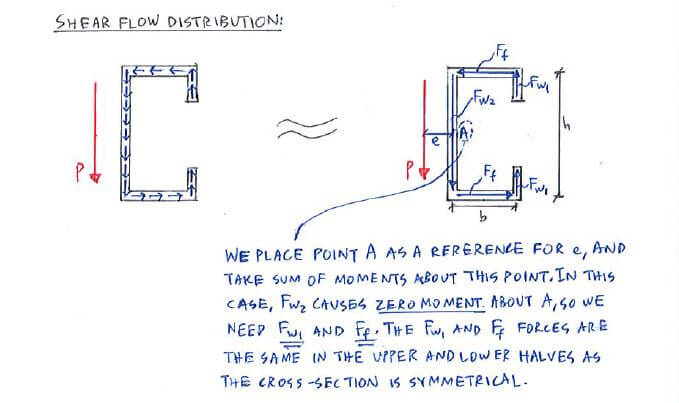 SHEAR FLOW DISTRIBUTION:
P
≈
Ff
Fw1
Fw2
A
e
P
h
Ff
Fw1
b
WE PLACE POINT A AS A RERERENCE FOR e, AND
TAKE SUM OF MOMENTS ABOUT THIS POINT. IN THIS
CASE, Fw2 CAUSES ZERO MOMENT ABOUT A, SO WE
NEED Fw1 AND Ff. THE Fw1 AND Ff FORCES ARE
THE SAME IN THE UPPER AND LOWER HALVES AS
THE CROSS-SECTION IS SYMMETRICAL.